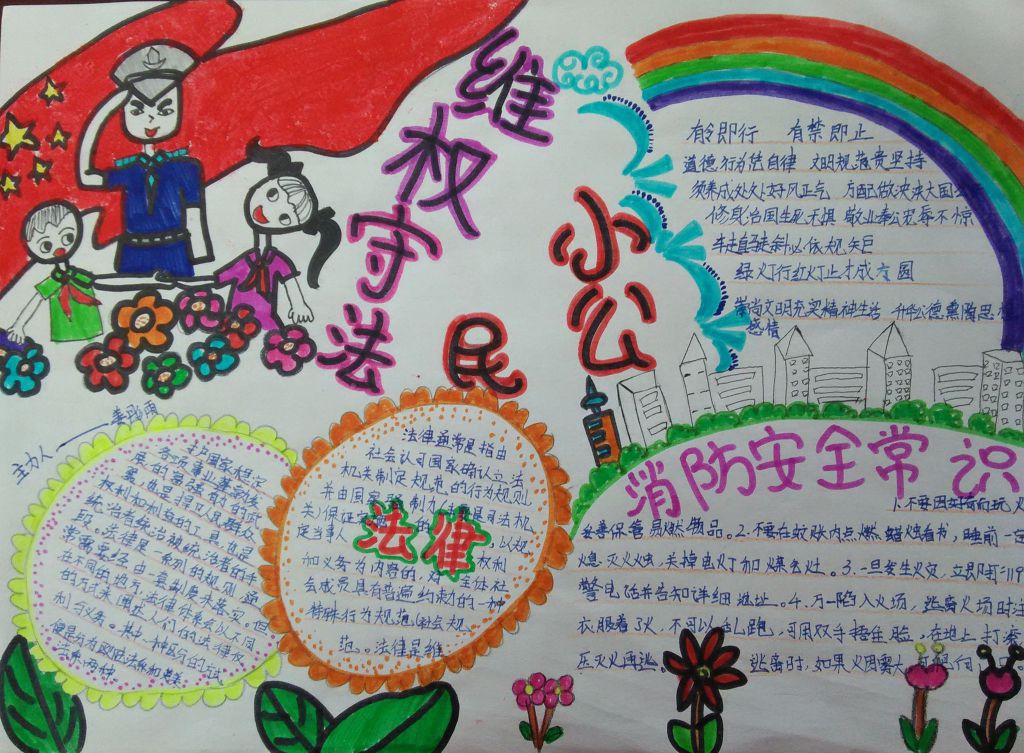 维权守法
小公民
有令即行 有禁即止
道德行为凭自律 文明规范贵坚持
须养成处处好风正气 方配做泱泱大国公
修身治国生死无惧 敬业奉公宠辱不惊
车走直马走斜必依规矩
绿灯行红灯止才成方圆
崇尚文明充实精神生活 升华公德熏陶思想
感情
主办人
法律通常是指由
社会认可国家确认立法
机关制定规范的行为规则
并由国家强制力
保证
定当事人
以规
权利
和义务为内容的,对全体社
会成员具有普遍约束力的一种
特殊行为规范(社会规
范)。法律是维
法律
护国家稳定
各项事业蓬勃发
展的最强有力的武
器,也是捍卫人民群众
权利和利益的工具,也是
统治者统治被统治者的手
段。法律是一系列的规则,通
常需要经由一套制度来落实。但
在不同的地方,法律体系会以不同
的方式来阐述人们的法律权
利与义务。其中一种区分的方式
便是分为欧陆法系和英美
法系两种。
消防安全常识
1.不要因好奇而玩火
妥善保管易燃物品。2.不要在蚊帐内点燃蜡烛看书,睡前一定
熄灭火烛,关掉电灯加煤气灶。3.一旦发生火灾,立即打119
警电话并告知详细地址。4.万一陷入火场,逃离火场时注
衣服着了火,不可以乱跑,可用双手捂住脸,在地上打滚
压灭火再逃。逃离时,如果火因雾大